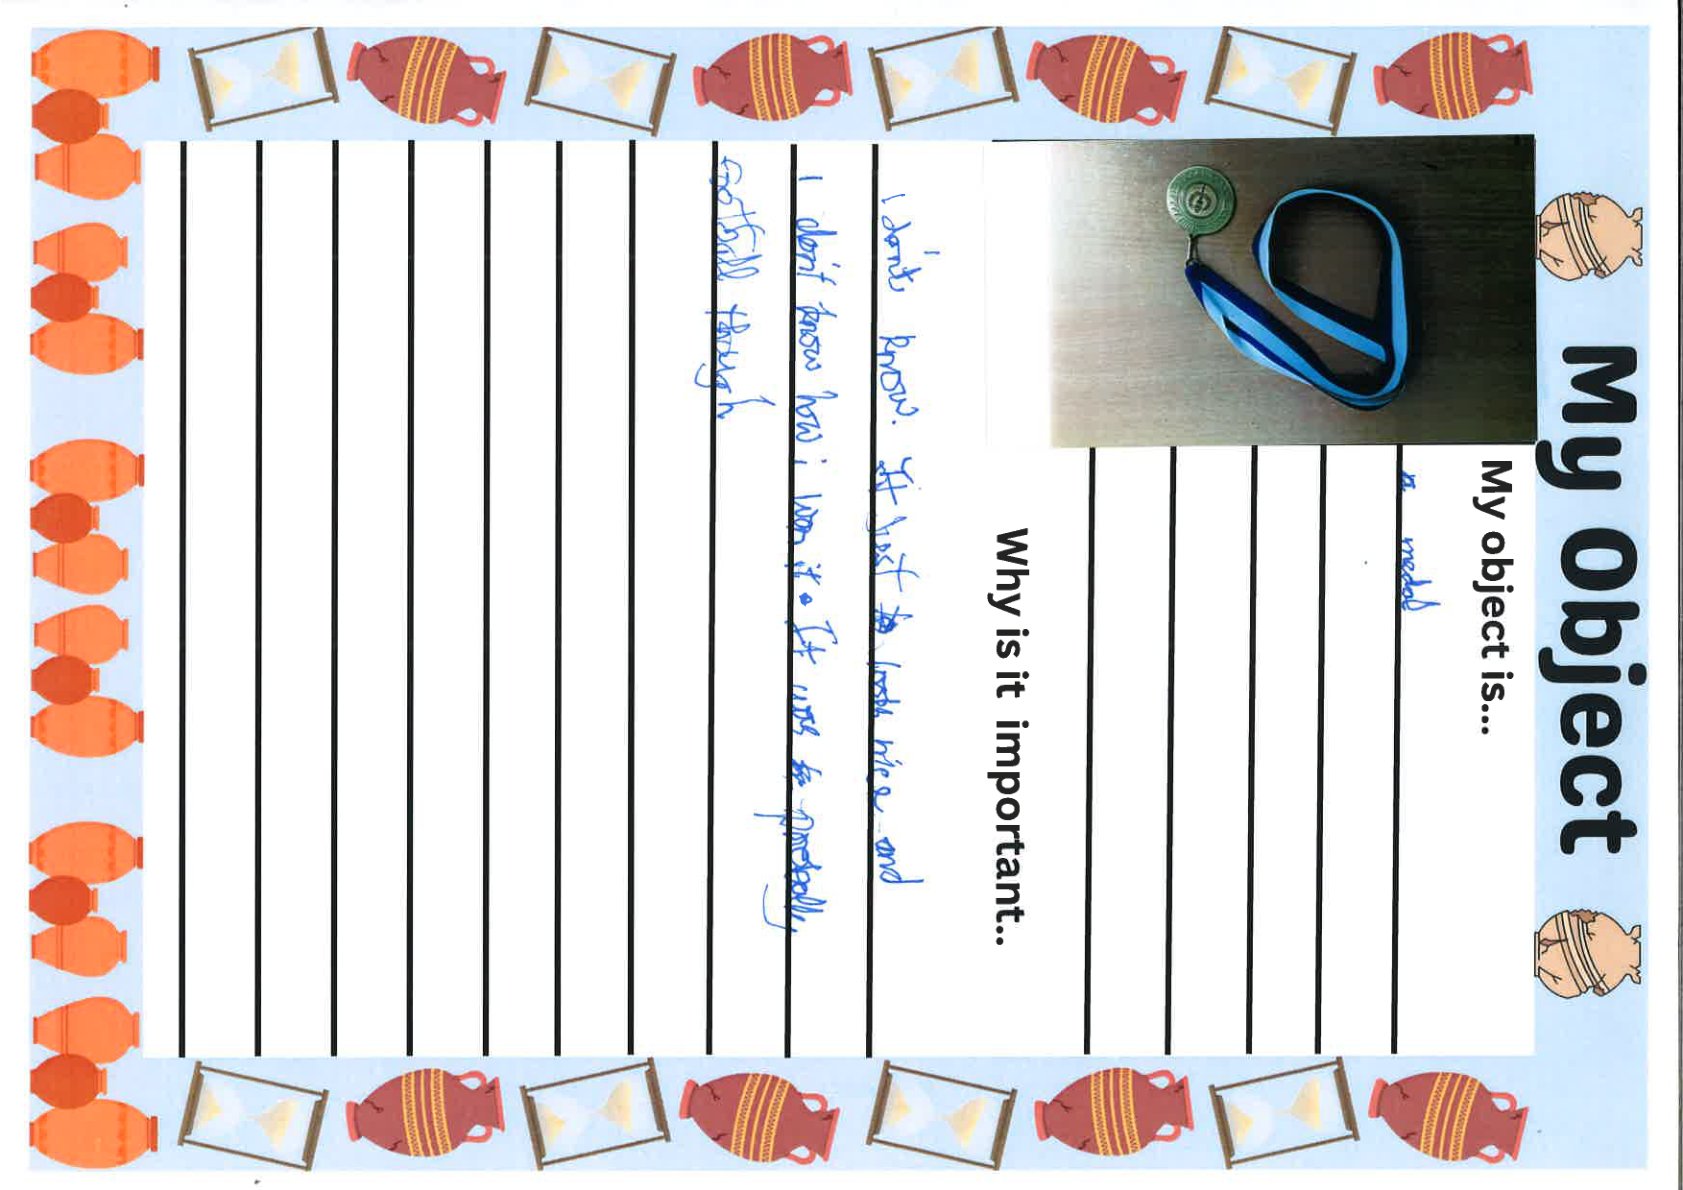 My Object
My object is...
a medal
Why is it important..
I don't know. It just looks nice and
I don't know how i won it. It was probably
football though